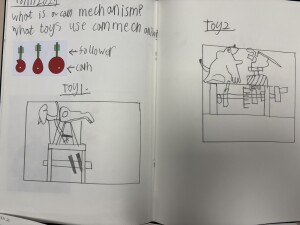 what is a cam mechanisme
what toys use cam mechanisme
←follower
←cam
TOY1.
TOY2